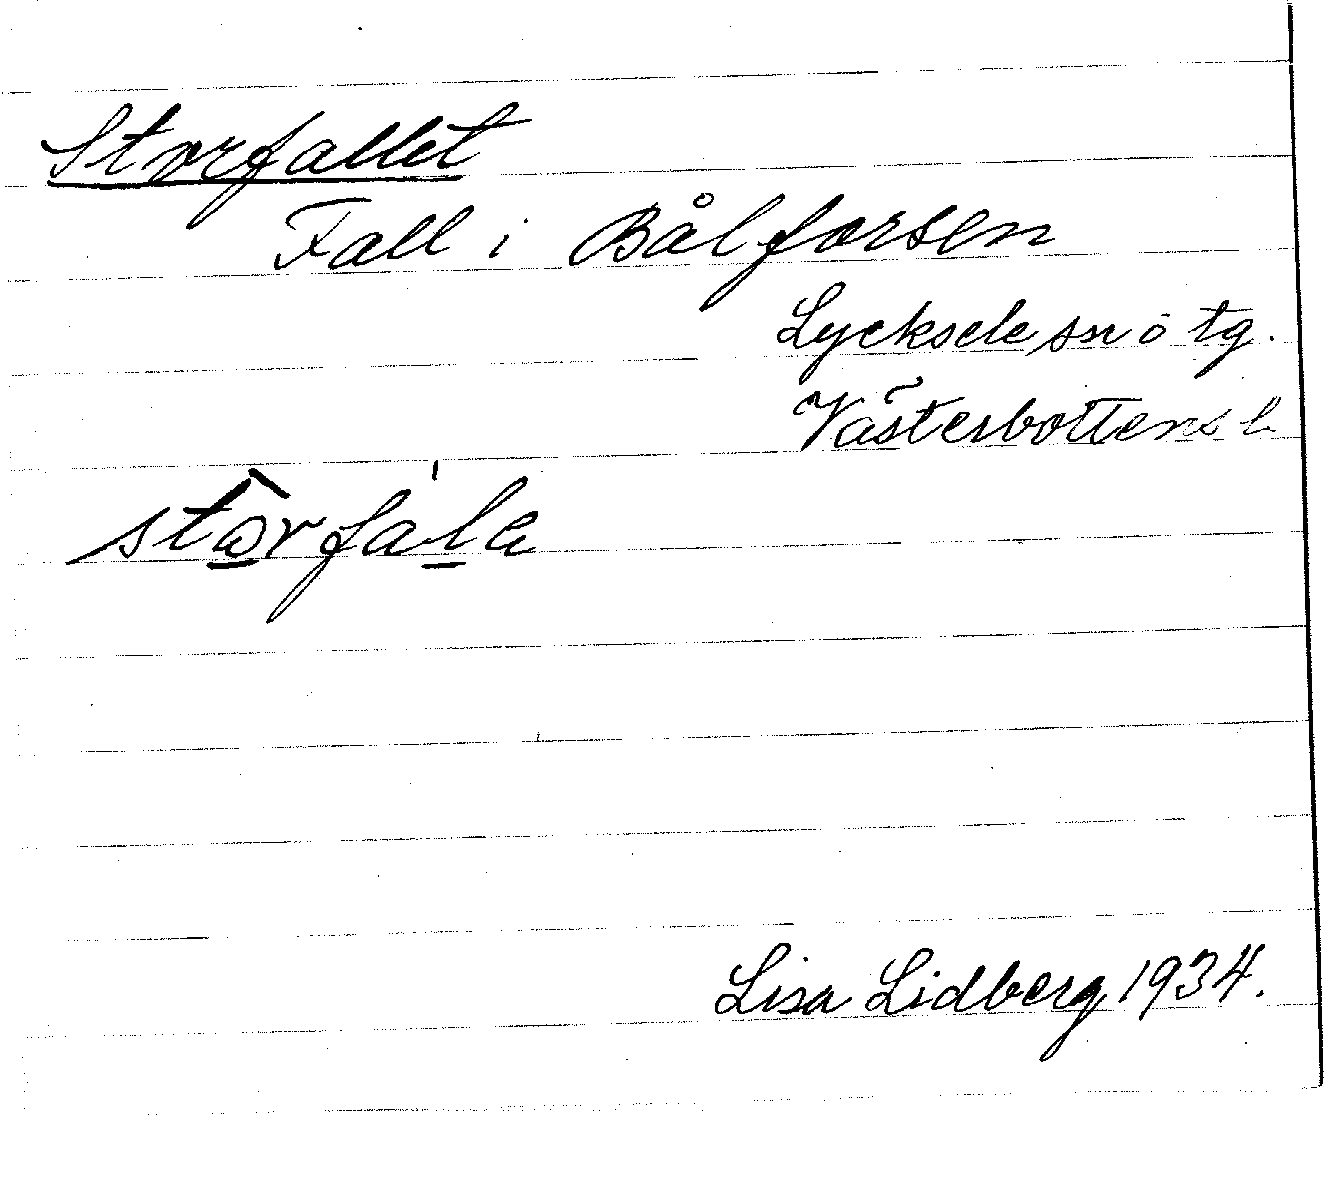 Storfallet
Fall i Bålforsen
Lycksele sn o tg.
Västerbottens l.
Lisa Lidberg 1934.